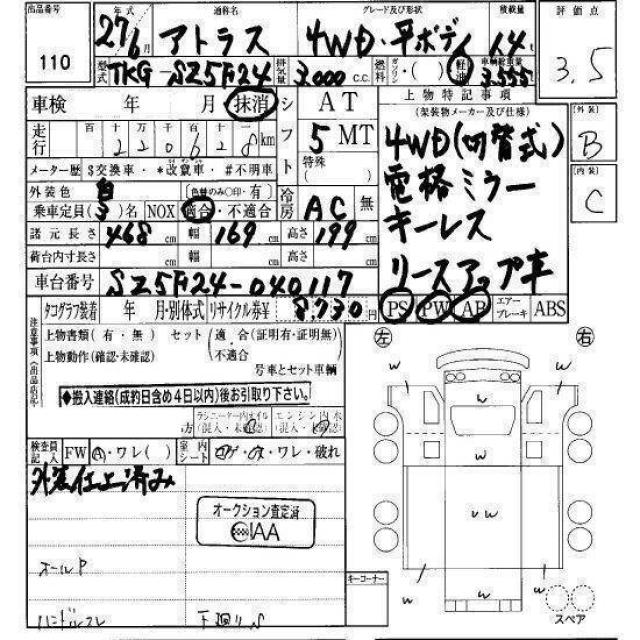 出品番号 年式 通称名 グレード及び形状 積載量 評価点
110 27 6月 アトラス 4WD・平ボデー 1.4t 3.5
型式 TKG-SZ5F24 排気量 3.000 C.C. 燃料 ガソリン・( ) 軽油 車輌総重量 3.555
車検 年 月 抹消 シフト AT 上物特記事項
(架装物メーカー及び仕様)
走行 百 十 万 千 百 十 一 km
2 2 0 6 2 8
5 MT
特殊 ( )
4WD(切替式)
電格ミラー
キーレス
リースアップ車
外装 B
内装 C
メーター歴 $交換車・*改竄車・#不明車
外装色 白 (色替のみ○印・有) 冷房 AC 無
乗車定員(3)名 NOX 適合・不適合
諸元長さ 468 cm 幅 169 cm 高さ 199 cm
荷台内寸長さ cm 幅 cm 高さ cm
車台番号 SZ5F24-040117
タコグラフ装着 年 月・別体式 リサイクル券¥ 8,730円 PS PW AB エアーブレーキ ABS
注意事項(出品店記入)
上物書類(有・無) セット(適合(証明有・証明無)・不適合)
上物動作(確認・未確認) 号車とセット車輌
左 右
◆搬入連絡(成約日含め4日以内)後お引取り下さい。
ラジエーター内オイル エンジン内水
(混入・未確認) (混入・未確認)
検査員記入 FW A・ワレ( ) 室内シート コゲ・穴・ワレ・破れ
外装仕上済み
オークション査定済
IAA
オールP
ハンドルスレ 下廻りS
キーコーナー
w w w w w w w w w w
スペア